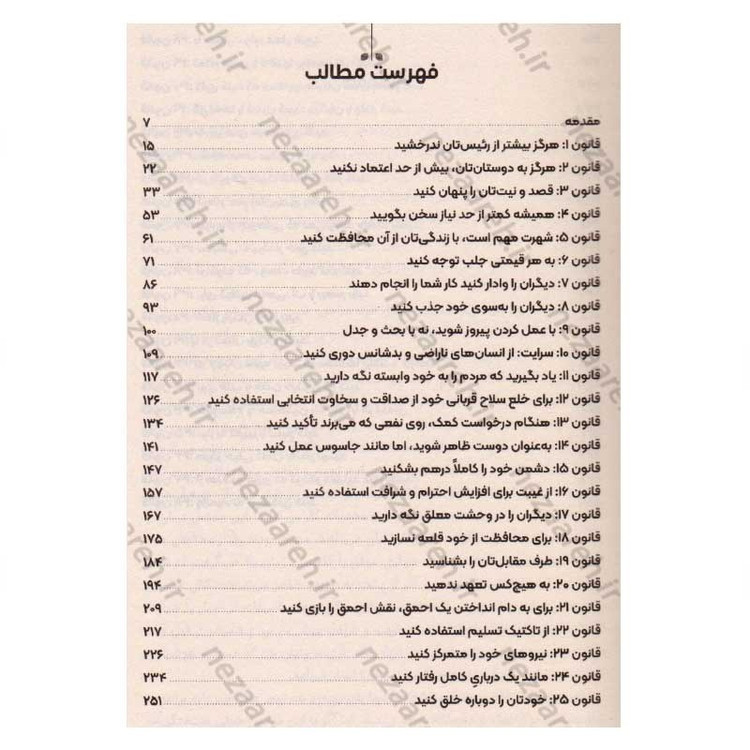 فهرست مطالب
مقدمه ۷
قانون ۱: هرگز بیشتر از رئیس‌تان ندرخشید ۱۵
قانون ۲: هرگز به دوستان‌تان، بیش از حد اعتماد نکنید ۲۲
قانون ۳: قصد و نیت‌تان را پنهان کنید ۳۳
قانون ۴: همیشه کمتر از حد نیاز سخن بگویید ۵۳
قانون ۵: شهرت مهم است، با زندگی‌تان از آن محافظت کنید ۶۱
قانون ۶: به هر قیمتی جلب توجه کنید ۷۱
قانون ۷: دیگران را وادار کنید کار شما را انجام دهند ۸۶
قانون ۸: دیگران را به‌سوی خود جذب کنید ۹۳
قانون ۹: با عمل کردن پیروز شوید، نه با بحث و جدل ۱۰۰
قانون ۱۰: سرایت: از انسان‌های ناراضی و بدشانس دوری کنید ۱۰۹
قانون ۱۱: یاد بگیرید که مردم را به خود وابسته نگه دارید ۱۱۷
قانون ۱۲: برای خلع سلاح قربانی خود از صداقت و سخاوت انتخابی استفاده کنید ۱۲۶
قانون ۱۳: هنگام درخواست کمک، روی نفعی که می‌برند تأکید کنید ۱۳۴
قانون ۱۴: به‌عنوان دوست ظاهر شوید، اما مانند جاسوس عمل کنید ۱۴۱
قانون ۱۵: دشمن خود را کاملاً درهم بشکنید ۱۴۷
قانون ۱۶: از غیبت برای افزایش احترام و شرافت استفاده کنید ۱۵۷
قانون ۱۷: دیگران را در وحشت معلق نگه دارید ۱۶۷
قانون ۱۸: برای محافظت از خود قلعه نسازید ۱۷۵
قانون ۱۹: طرف مقابل‌تان را بشناسید ۱۸۴
قانون ۲۰: به هیچ‌کس تعهد ندهید ۱۹۴
قانون ۲۱: برای به دام انداختن یک احمق، نقش احمق را بازی کنید ۲۰۹
قانون ۲۲: از تاکتیک تسلیم استفاده کنید ۲۱۷
قانون ۲۳: نیروهای خود را متمرکز کنید ۲۲۶
قانون ۲۴: مانند یک درباریِ کامل رفتار کنید ۲۳۴
قانون ۲۵: خودتان را دوباره خلق کنید ۲۵۱
nezaareh.ir